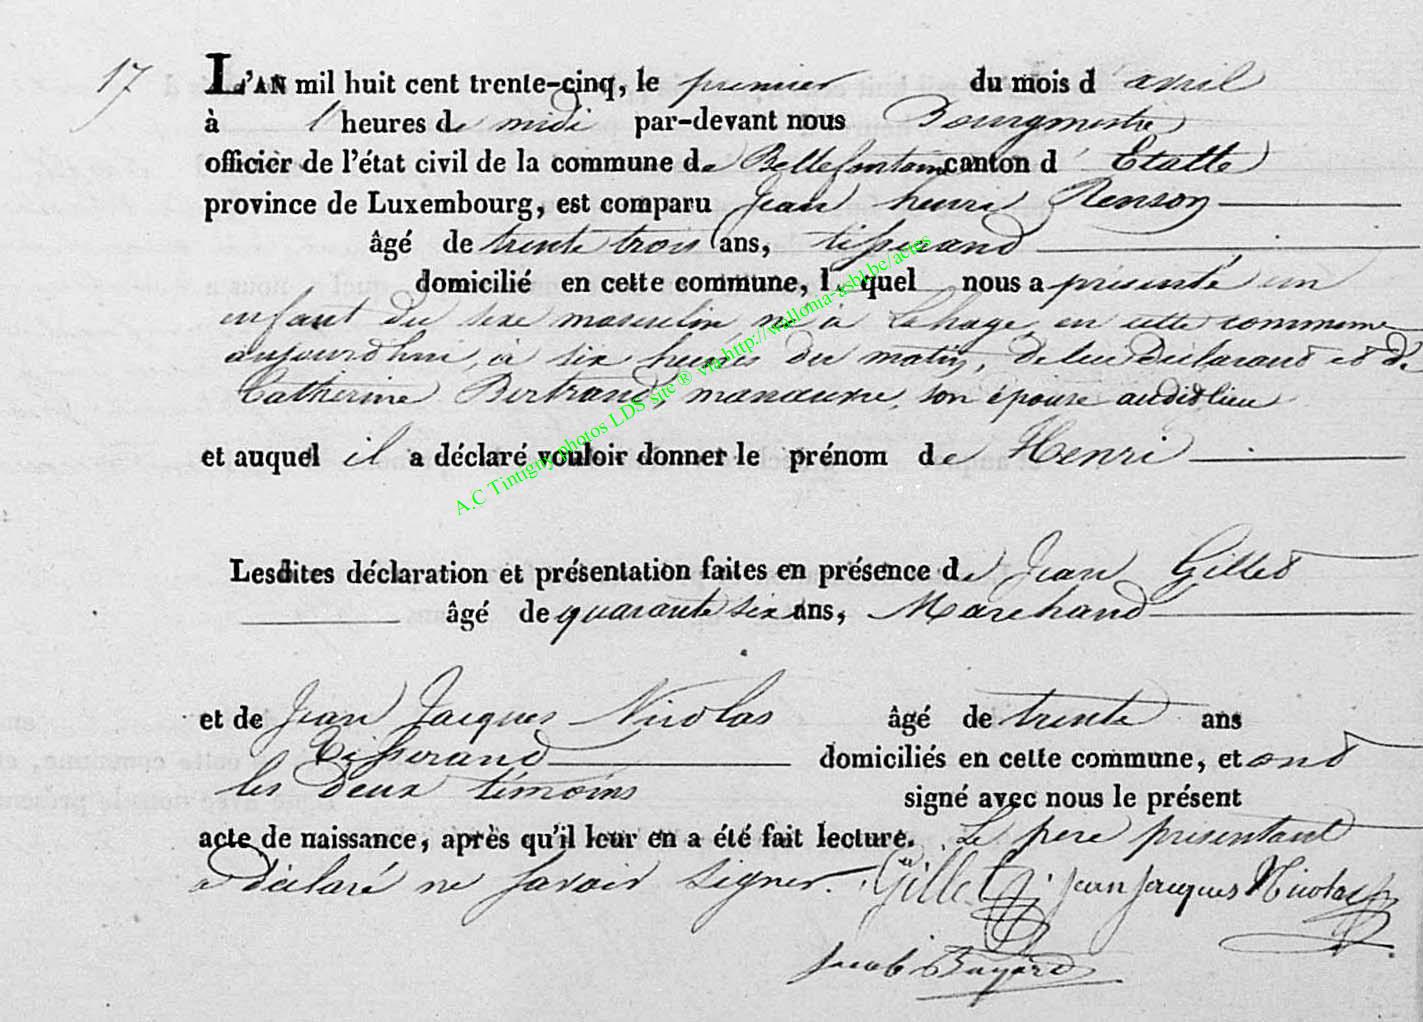 17 L'AN mil huit cent trente-cinq, le premier du mois d'avril
à l'heures de midi par-devant nous Bourgmestre
officier de l'état civil de la commune de Bellefontaine canton d'Etalle
province de Luxembourg, est comparu Jean henri Renson
âgé de trente trois ans, tisserand
domicilié en cette commune, lequel nous a présenté un
enfant du sexe masculin né à Lahage, en cette commune
aujourd'hui, à six heures du matin, de lui déclarant et de
Catherine Bertrand, manœuvre, son épouse audit lieu
et auquel il a déclaré vouloir donner le prénom de Henri
A.C Tintigny photos LDS site ® via http://wallonia-asbl.be/actes
Lesdites déclaration et présentation faites en présence de Jean Gillet
âgé de quarante six ans, Marchand
et de Jean Jacques Nicolas âgé de trente ans
Tisserand domiciliés en cette commune, et ont
les deux témoins signé avec nous le présent
acte de naissance, après qu'il leur en a été fait lecture. Le pere présentant
a déclaré ne savoir signer. Gillet jean jacques Nicolas
Jacob Bayard